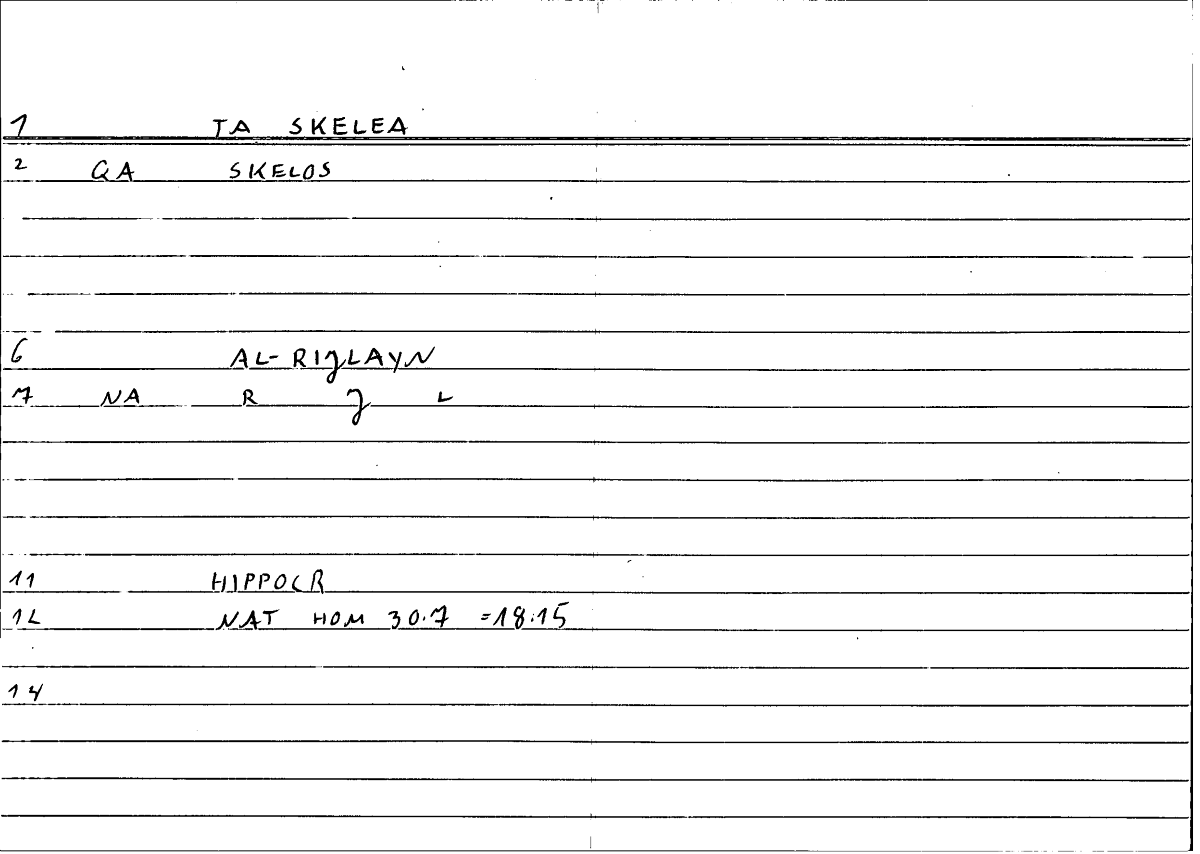 1 TA SKELEA
2 GA SKELOS
6 AL-RIJLAYN
7 NA R J L
11 HIPPOCR
12 NAT HOM 30.7 =18.15
14